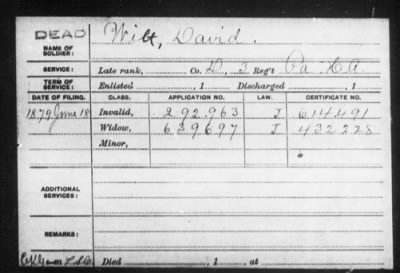 DEAD
NAME OF SOLDIER:
Wilt, David.
SERVICE:
Late rank, Co. D, 2 Reg't Pa H A
TERM OF SERVICE:
Enlisted , 1 Discharged , 1
DATE OF FILING. CLASS. APPLICATION NO. LAW. CERTIFICATE NO.
1879 June 18 Invalid, 292.963 J 614.491
Widow, 629697 J 432.228
Minor,
ADDITIONAL SERVICES:
REMARKS:
Died , 1 , at